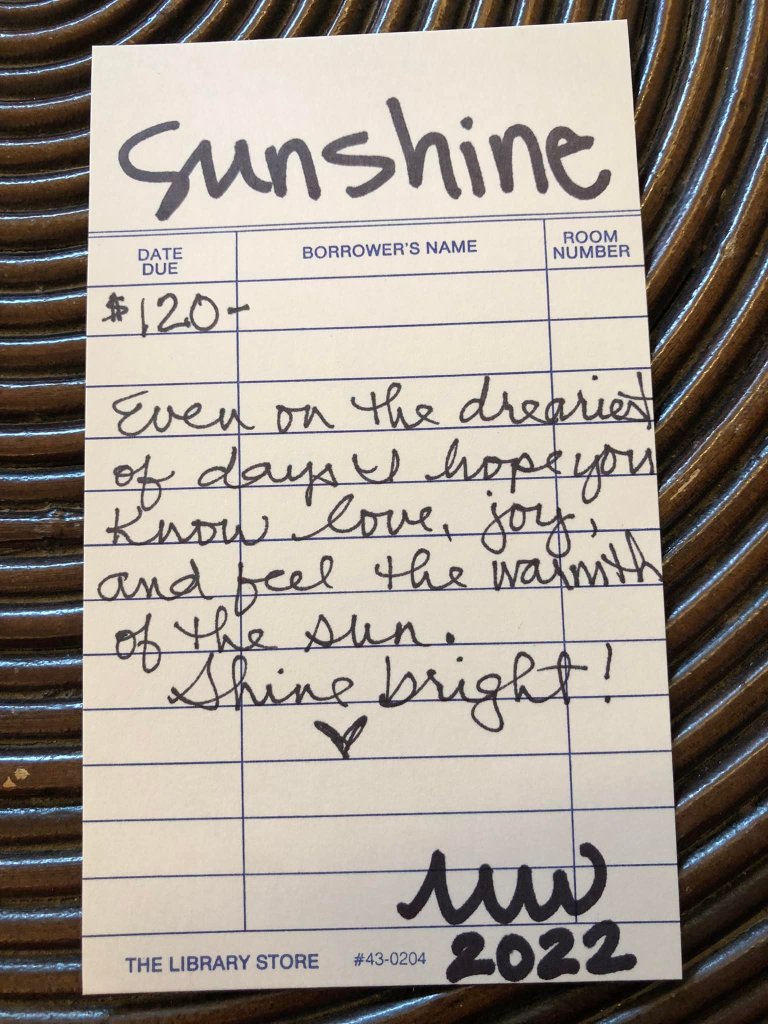 Sunshine
DATE DUE
BORROWER'S NAME
ROOM NUMBER
$120-
Even on the dreariest
of days I hope you
know love, joy,
and feel the warmth
of the sun.
Shine bright!
2022
THE LIBRARY STORE #43-0204